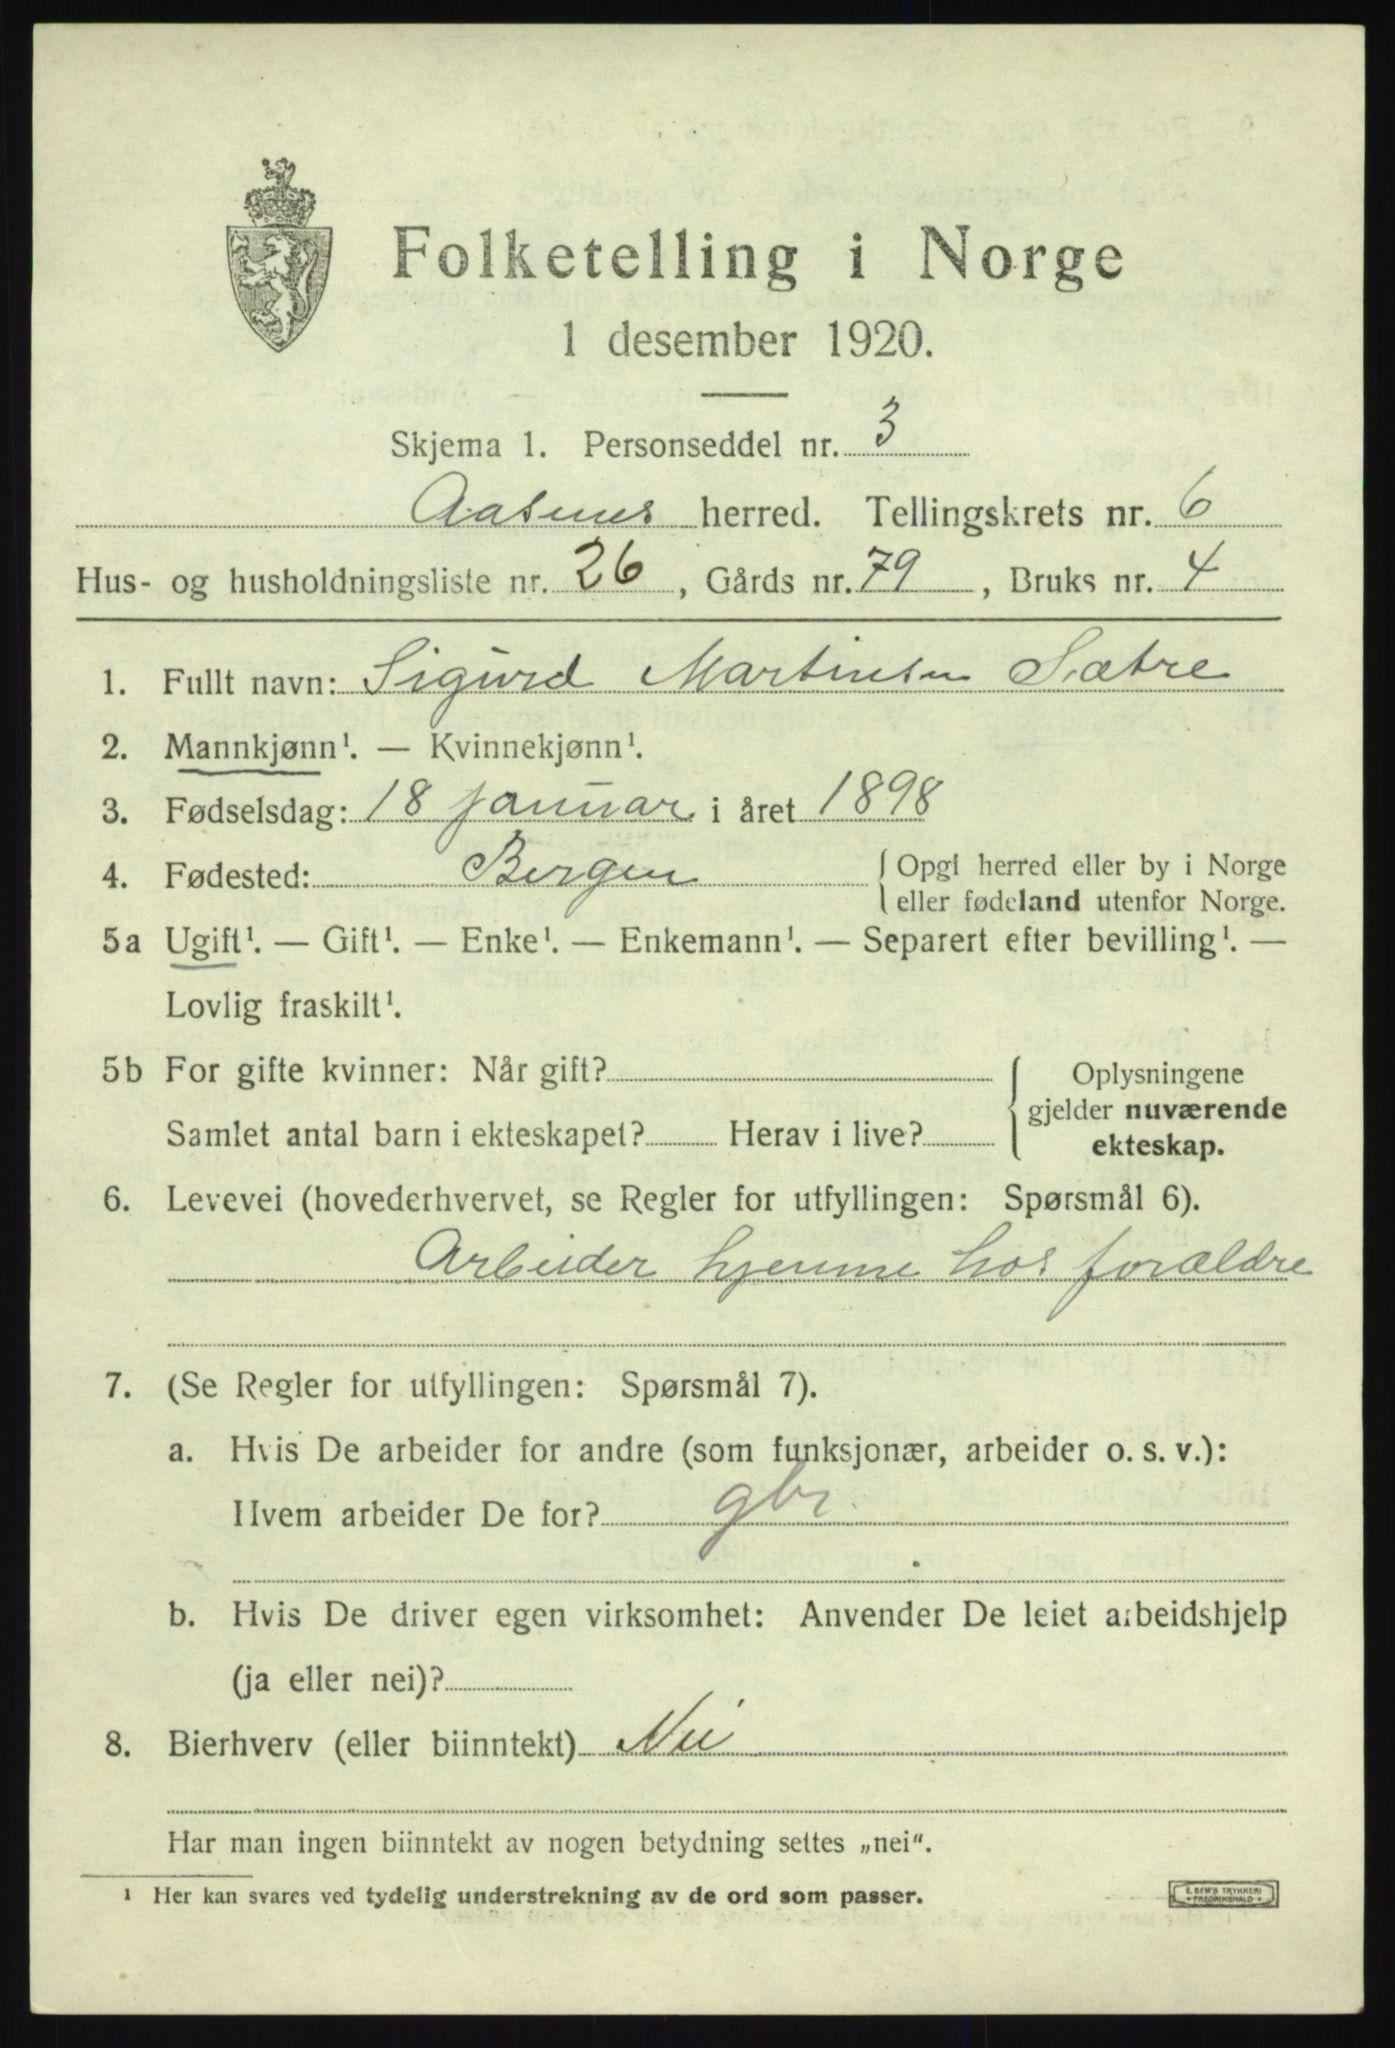 Folketelling i Norge
1 desember 1920.
Skjema 1. Personseddel nr. 3
Aasnes herred. Tellingskrets nr. 6
Hus- og husholdningsliste nr. 26, Gårds nr. 79, Bruks nr. 4
1. Fullt navn: Sigurd Martinsen Sætre
2. Mannkjønn¹. — Kvinnekjønn¹.
3. Fødselsdag: 18 januar i året 1898
4. Fødested: Bergen { Opgi herred eller by i Norge
eller fødeland utenfor Norge.
5a Ugift¹. — Gift¹. — Enke¹. — Enkemann¹. — Separert efter bevilling¹. —
Lovlig fraskilt¹.
5b For gifte kvinner: Når gift? { Oplysningene
gjelder nuværende
Samlet antal barn i ekteskapet? Herav i live?
ekteskap.
6. Levevei (hovederhvervet, se Regler for utfyllingen: Spørsmål 6).
Arbeider hjemme hos forældre
7. (Se Regler for utfyllingen: Spørsmål 7).
a. Hvis De arbeider for andre (som funksjonær, arbeider o. s. v.):
Hvem arbeider De for? gbr.
b. Hvis De driver egen virksomhet: Anvender De leiet arbeidshjelp
(ja eller nei)?
8. Bierhverv (eller biinntekt) Nei
Har man ingen biinntekt av nogen betydning settes „nei“.
¹ Her kan svares ved tydelig understrekning av de ord som passer.
E. SEM'S TRYKKERI
FREDRIKSHALD